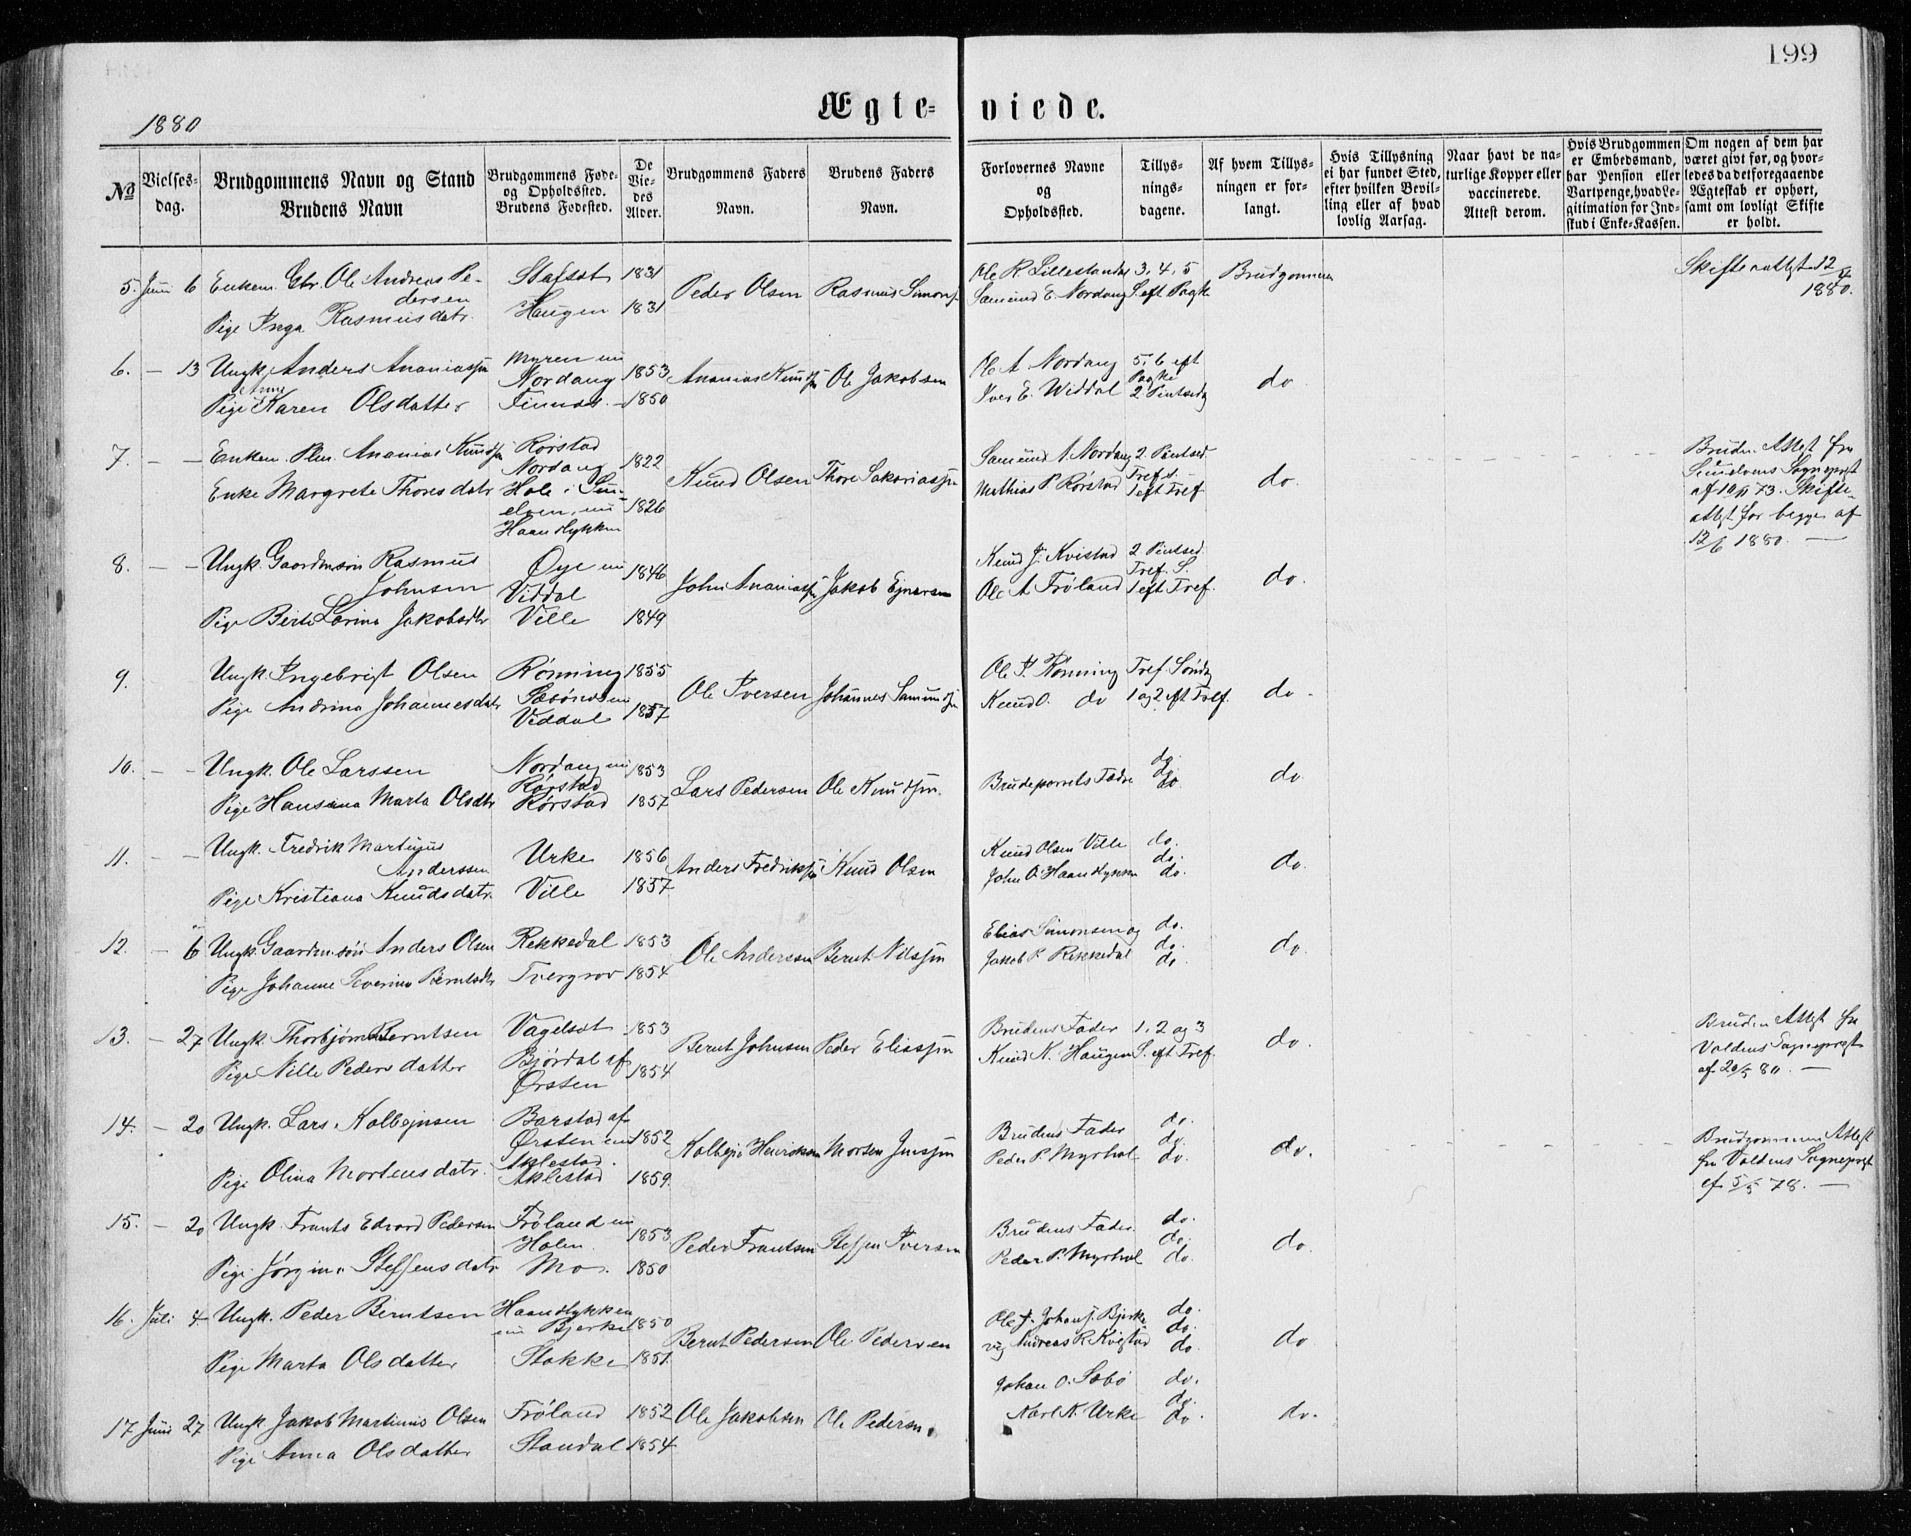 199
Ægte-
viede.
1880
No
Vielses-
dag.
Brudgommens Navn og Stand
Brudens Navn
Brudgommens Føde-
og Opholdssted.
Brudens Fødested.
De
Vie-
des
Alder.
Brudgommens Faders
Navn.
Brudens Faders
Navn.
Forlovernes Navne
og
Opholdssted.
Tillys-
nings-
dagene.
Af hvem Tillys-
ningen er for-
langt.
Hvis Tillysning
ei har fundet Sted,
efter hvilken Bevil-
ling eller af hvad
lovlig Aarsag.
Naar havt de na-
turlige Kopper eller
vaccinerede.
Attest derom.
Hvis Brudgommen
er Embedsmand,
har Pension eller
Vartpenge, hvad Le-
gitimation for Ind-
skud i Enke-Kassen.
Om nogen af dem har
været givt før, og hvor-
ledes da det foregaaende
Ægteskab er ophørt,
samt om lovligt Skifte
er holdt.
5. Juni 6 Enkem. Gbr. Ole Andreas Pe-
dersen
Pige Inga Rasmusdatr.
Stafset
Haugen
1831
1831
Peder Olsen
Rasmus Simons.
Ole R. Lillestandal
Samund E. Nordang
3, 4, 5
S. eft Paske
Brudgommen
Skifteattest 12/4
1880.
6. – 13 Ungk. Anders Ananiassøn
Pige Anne Karen Olsdatter
Myren nu
Nordang
Finnes
1853
1850
Ananias Knudsøn
Ole Jakobsen
Ole A Nordang
Iver E. Widdal
5, 6 eft
Paske
2 Pintsedag
do
7. – – Enkem. Ananias Knudsøn
Enke Margrete Thoresdatr
Rørstad
Nordang
Hole i Sun-
elven, nu
Haandlykken
1822
1826
Knud Olsen
Thore Sakariassøn
Samund A. Nordang
Mathias P. Rørstad
2 Pintsed.
Tref. S.
1 eft Tref
do.
Bruden Attest fra
Sunelvens Sogneprest
af 10/11 73. Skifte-
attest for begge af
12/6 1880. –
8. – – Ungk. Gaardmsøn Rasmus
Johnsen
Pige Berte Larina Jakobsdtr
Øye nu
Viddal
Ville
1846
1849
John Ananiassøn
Jakob Ejnarsen
Knud J. Kvistad
Ole A Frøland
2 Pintsed.
Tref. S.
1 eft Tref.
do.
9. Ungk. Ingebrigt Olsen
Pige Andrina Johannesdatr
Rønning
Sæbønes nu
Viddal
1855
1857
Ole Iversen
Johannes Samundsøn
Ole I. Rønning
Knud O. do
Tref. Søndag
1 og 2 eft Tref.
do.
10. – – Ungk. Ole Larssen
Pige Hansina Marta Olsdtr
Nordang nu
Rørstad
Rørstad
1853
1857
Lars Pedersen
Ole Knudsøn.
Brudeparrets Fædre
do.
do.
do.
do
11. – – Ungk. Fredrik Martinus
Anderssen
Pige Kristiana Knudsdatr.
Urke
Ville
1856
1857
Anders Fredriksøn
Knud Olsen
Knud Olsen Ville
John O. Haandlykken
do.
do.
do.
do.
12. – 6 Ungk. Gaardmsøn Anders Olsen
Pige Johanne Severine Berntsdtr
Rekkedal
Tvergrov
1853
1854
Ole Anderssen
Bernt Nilssøn
Elias Simonsen og
Jakob P. Rekkedal
do.
do.
do
do.
13. – 27 Ungk. Thorbjørn Berntsen
Pige Nille Pedersdatter
Vagelset
Bjørdal af
Ørsten
1853
1854
Bernt Johnsen
Peder Eliassøn
Brudens Fader
Knud N. Haugen
1, 2 og 3
S. eft Tref.
do.
Bruden Attest fra
Voldens Sogneprest
af 20/5 80. –
14. – 20 Ungk. Lars Kolbejnsen
Pige Olina Mortensdatr.
Barstad af
Ørsten nu
Aklestad.
Aklestad
1852
1859.
Kolbejn Henriksen
Morten Jenssøn
Brudens Fader
Peder P. Myrhol
do.
do.
do.
do.
Brudgommen Attest
fra Voldens Sogneprest
af 5/5 78. –
15. – 20 Ungk. Frants Edvard Pedersen
Pige Jørgine Steffensdatr
Frøland nu
Holen
Mo.
1853
1850
Peder Frantsen
Steffen Iversen
Brudens Fader.
Peder P. Myrhol
do.
do.
do.
do.
16. Juli 4. Ungk. Peder Berntsen
Pige Marta Olsdatter
Haandlykken
nu Bjerke
Stokke
1850
1851
Bernt Pedersen
Ole Pedersen
Ole J. Johans. Bjerke
og Andreas R. Kvistad
do.
do.
do.
do
17 Juni 27 Ungk. Jakob Martinus Olsen
Pige Anna Olsdatter
Frøland
Standal
1852
1854
Ole Jakobsen
Ole Pedersen
Johan O. Sæbø
Karl N. Urke
do.
do.
do.
do.